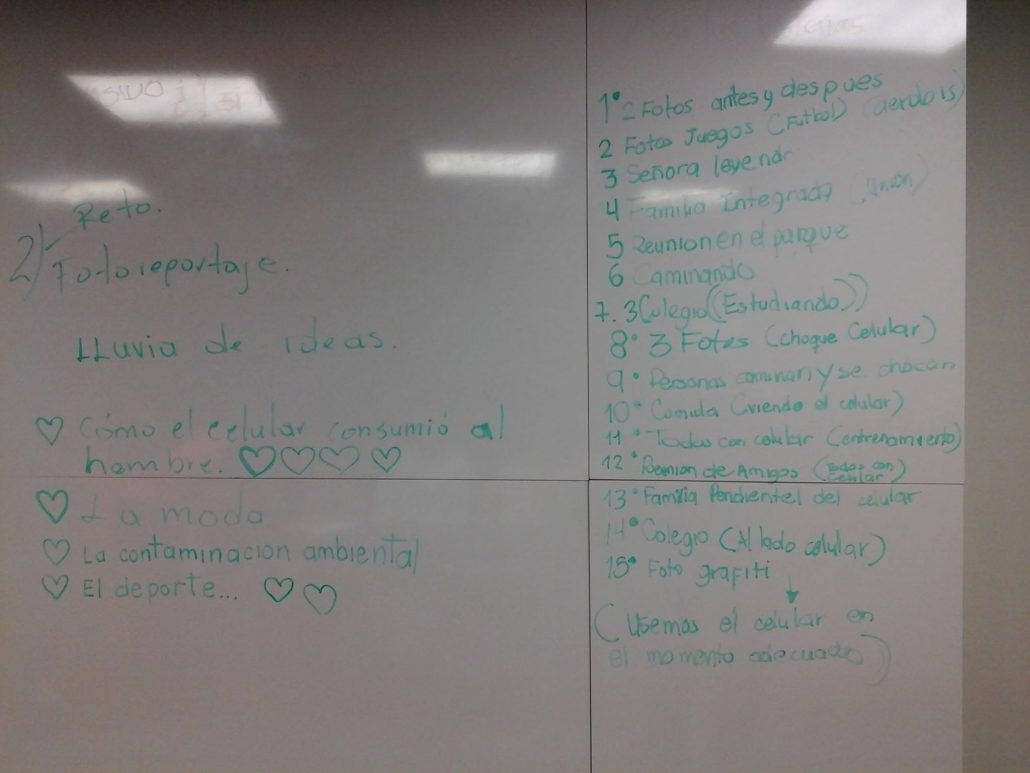 Reto.
2) Fotoreportaje.
LLuvia de ideas.
Cómo el celular consumió al
hombre.
La moda
La contaminacion ambiental
El deporte...
1° 2 Fotos antes y despues
2 Fotos Juegos (Futbol)
3 Señora leyendo
4 Familia Integrada (Union)
5 Reunion en el parque
6 Caminando
7. 3 Colegio ((Estudiando))
8° 3 Fotos (choque Celular)
9° Personas caminan y se chocan
10° Comida (viendo el celular)
11° Todos con celular (entrenamiento)
12° Reunion de Amigos (todos con
celular)
13° Familia Pendiente del celular
14° Colegio (Al lado celular)
15° Foto grafiti
(Usemos el celular en
el momento adecuado)